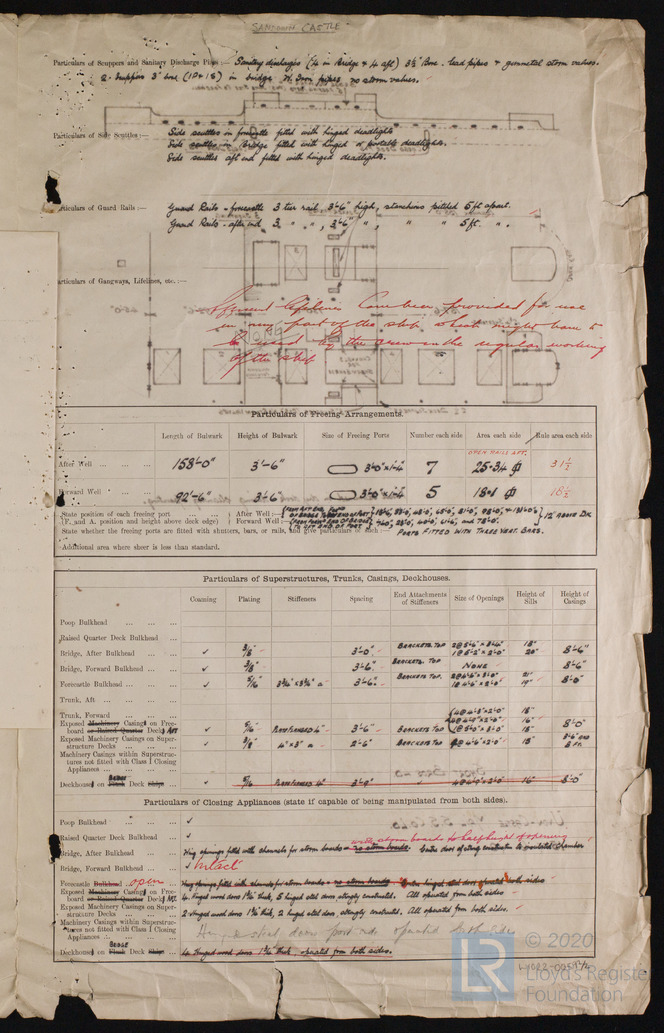 SANDOWN CASTLE
Particulars of Scuppers and Sanitary Discharge Pipes :— Sanitary discharges (4 in Bridge + 4 aft) 3½ Bore. lead pipes + gunmetal storm valves.
2 Scuppers 3" bore (1P+1S) in bridge W. Iron pipes, no storm valves.
Particulars of Side Scuttles :— Side scuttles in forecastle fitted with hinged deadlights
Side scuttles in Bridge fitted with hinged or portable deadlights.
Side scuttles aft end fitted with hinged deadlights.
Particulars of Guard Rails :— Guard Rails - forecastle 3 tier rail, 3'-6" high, stanchions pitched 5ft apart.
Guard Rails - after end 3 " ", 3'-6" ", " " 5ft. ".
Particulars of Gangways, Lifelines, etc. :—
Efficient lifelines Can be provided for use
in any part of the ship which might have to
be used by the crew in the regular working
of the ship
Particulars of Freeing Arrangements.
Length of Bulwark Height of Bulwark Size of Freeing Ports Number each side Area each side Rule area each side
OPEN RAILS AFT.
After Well 158'-0" 3'-6" 3'-0" x 1'-4" 7 25·34 31½
Forward Well 92'-6" 3'-6" 3'-0" x 1'-4" 5 18·1 18½
State position of each freeing port After Well :—
(F. and A. position and height above deck edge) Forward Well :— 12" ABOVE DK
State whether the freeing ports are fitted with shutters, bars, or rails, and give particulars of each :— PORTS FITTED WITH THREE VERT. BARS.
Additional area where sheer is less than standard.
Particulars of Superstructures, Trunks, Casings, Deckhouses.
Coaming Plating Stiffeners Spacing End Attachments of Stiffeners Size of Openings Height of Sills Height of Casings
Poop Bulkhead
Raised Quarter Deck Bulkhead
Bridge, After Bulkhead ✓ 3/8" 3'-0" BRACKETS TOP 18" 20" 8'-6"
Bridge, Forward Bulkhead ✓ 3/8" 3'-6" BRACKETS. TOP NONE 8'-6"
Forecastle Bulkhead ✓ 5/16 3'-6" BRACKETS TOP. 21" 19" 8'-0"
Trunk, Aft
Trunk, Forward
Exposed Machinery Casings on Freeboard or Raised Quarter Decks AFT ✓ 5/16 3'-6" BRACKETS TOP 18" 16" 18" 8'-0"
Exposed Machinery Casings on Superstructure Decks ✓ 2'-6" BRACKETS TOP 18"
Machinery Casings within Superstructures not fitted with Class I Closing Appliances
Deckhouses on Flush Deck Ships BRIDGE ✓ 5/16 3'-9" 16" 8'-0"
Particulars of Closing Appliances (state if capable of being manipulated from both sides).
Poop Bulkhead ✓
Raised Quarter Deck Bulkhead ✓
with storm boards to half height of opening
Bridge, After Bulkhead openings fitted with channels for storm boards - no storm boards.
Bridge, Forward Bulkhead ✓ Intact
Forecastle Bulkhead open openings fitted with channels for storm boards - no storm boards
Exposed Machinery Casings on Freeboard or Raised Quarter Decks AFT. 4 hinged wood doors 1¾" thick, 5 hinged steel doors strongly constructed. All operated from both sides
Exposed Machinery Casings on Superstructure Decks 2 hinged wood doors 1¾" thick, 2 hinged steel doors, strongly constructed. All operated from both sides.
Machinery Casings within Superstructures not fitted with Class I Closing Appliances Hinge steel door operated both sides
Deckhouses on Flush Deck Ships BRIDGE 4 hinged wood doors 1¾" thick, operated from both sides.
© 2020
Lloyd's Register
Foundation